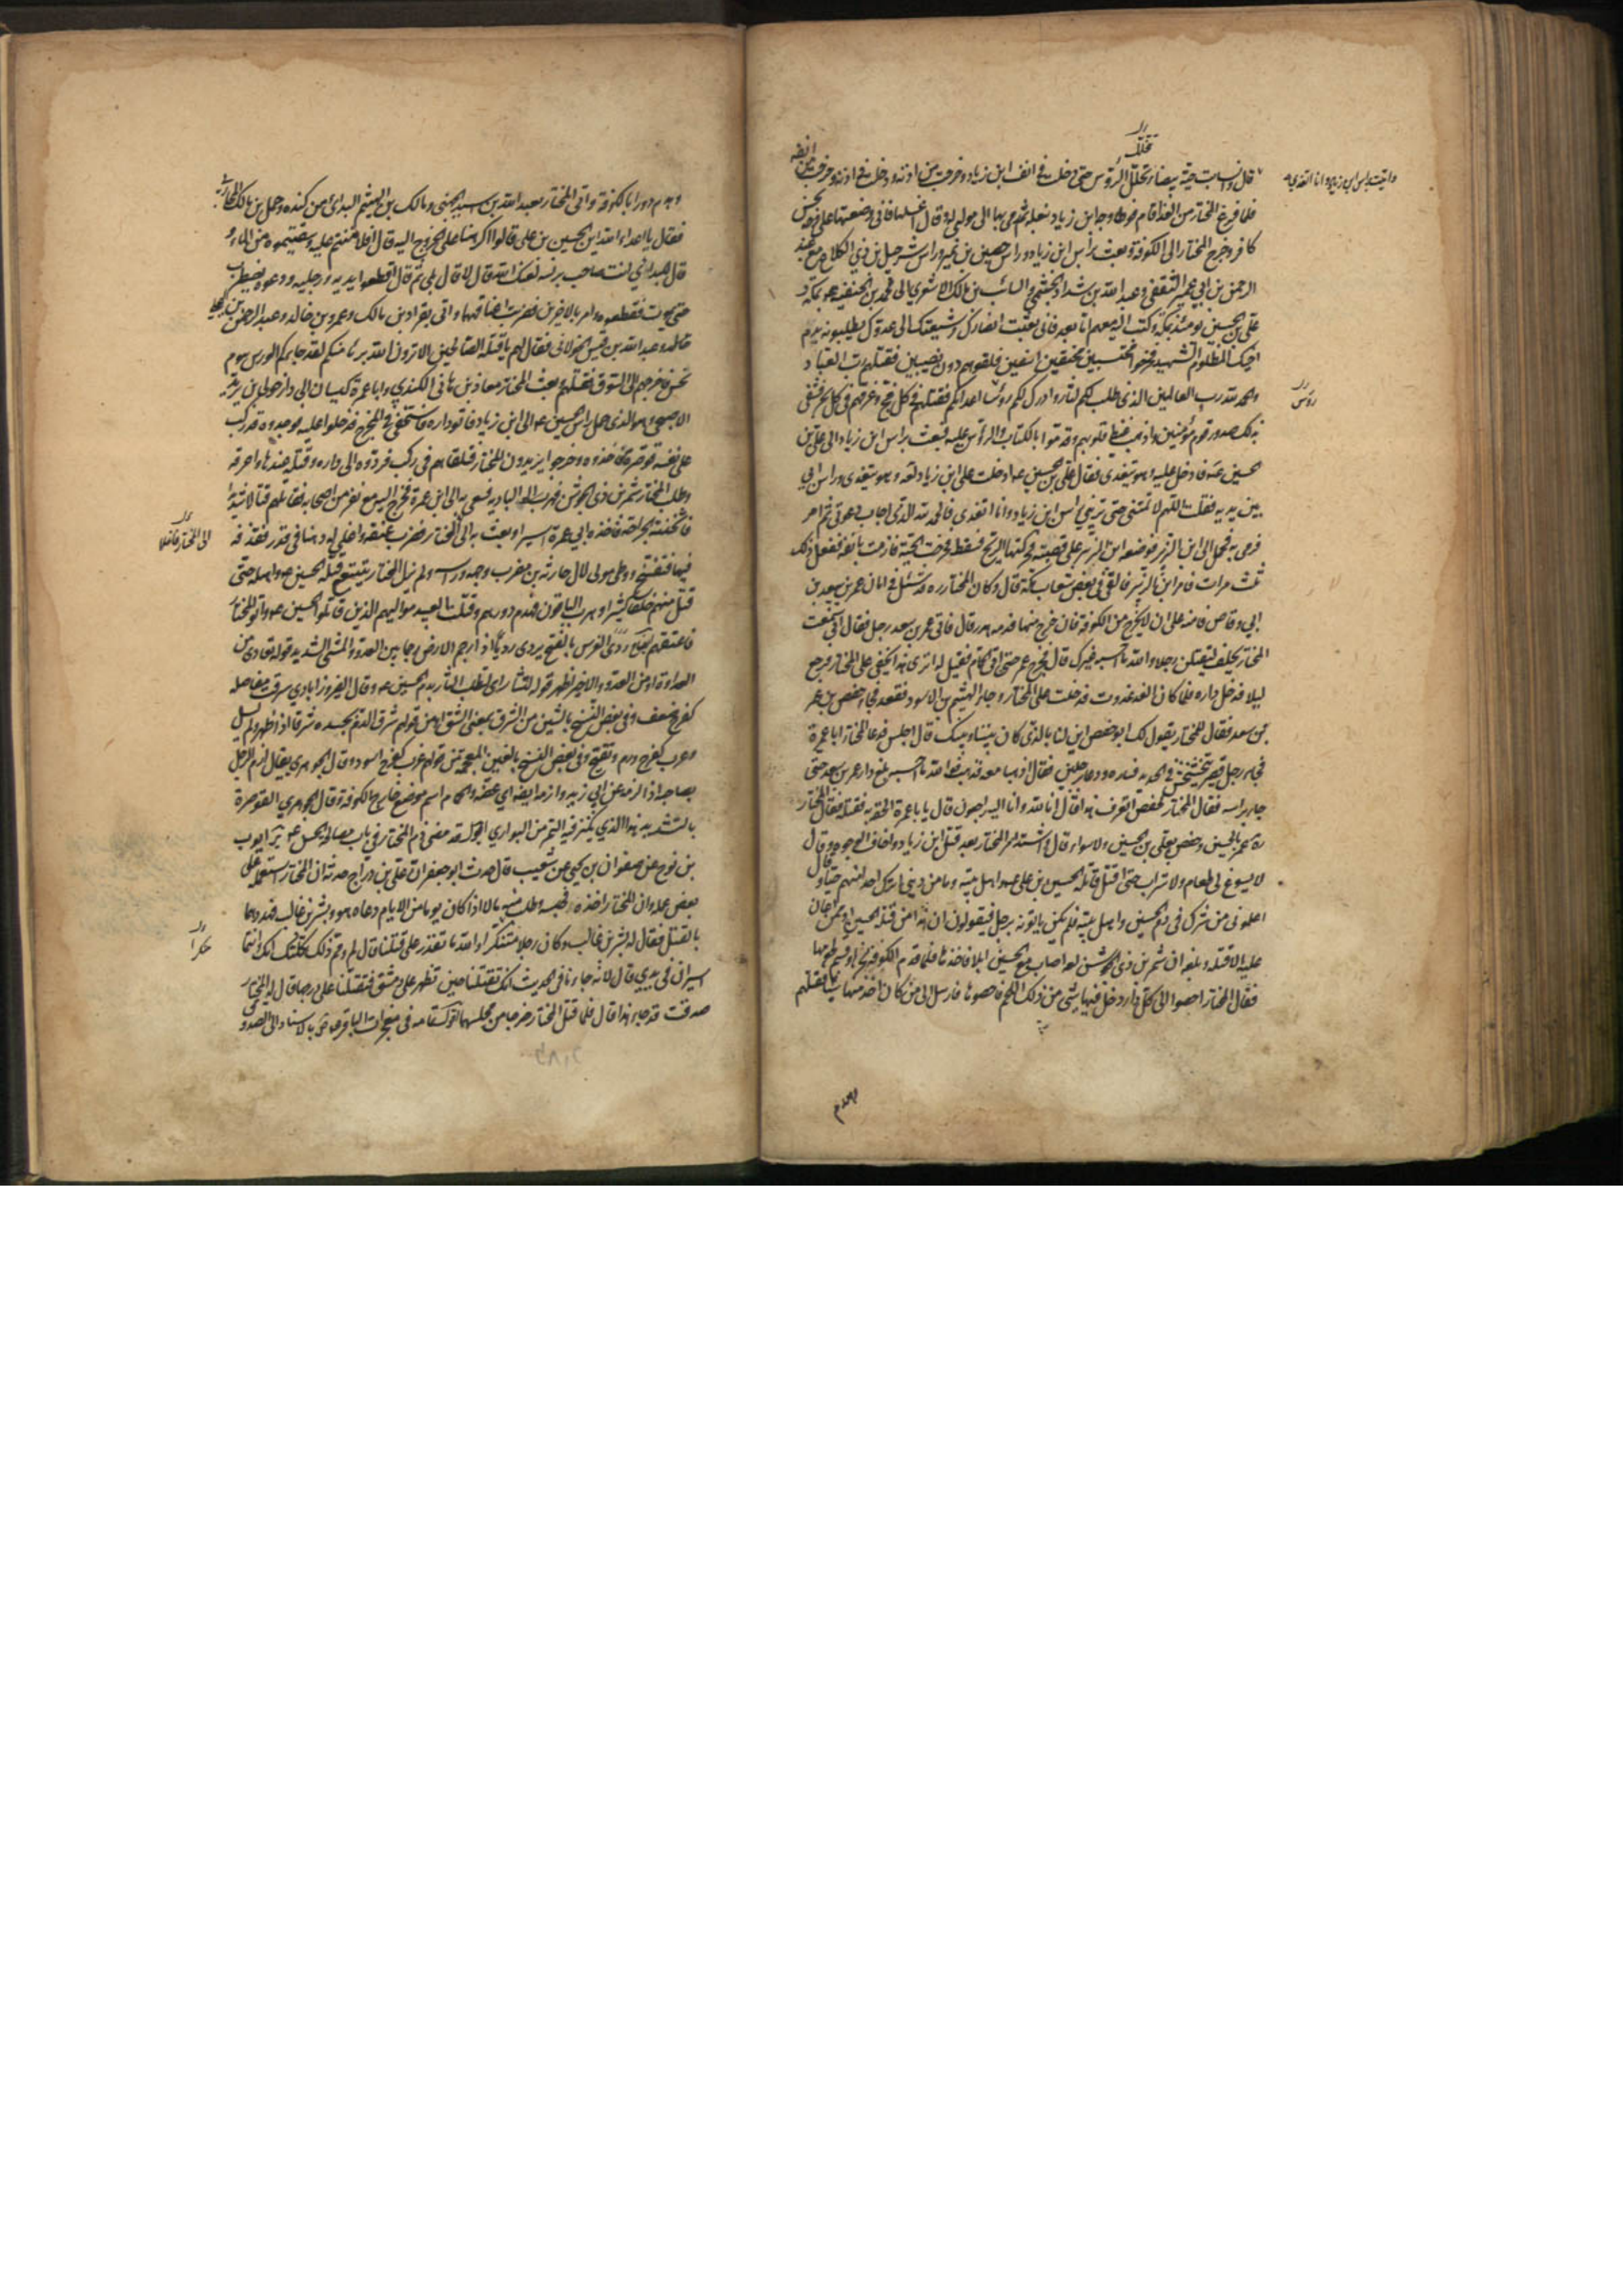 قال وانساب حية بيضاء تخلل الرؤس حتى دخلت في انف ابن زياد وخرجت من اذنه ودخلت في اذنه وخرجت من انفه
تخلل
واتيت براس ابن زياد وانا اتغدى
فلما فرغ المختار من الغداء قام فوطئ وجه ابن زياد بنعله ثم رمى بها الى مولى له وقال اغسلها فاني وضعتها على وجه نجس
كافر وخرج المختار الى الكوفة وبعث براس ابن زياد وراس حصين بن نمير وراس شرحبيل بن ذي الكلاع مع عبد
الرحمن بن ابي عمير الثقفي وعبد الله بن شداد الجشمي والسائب بن مالك الاشعري الى محمد بن الحنفية بمكة و
علي بن الحسين يومئذ بمكة وكتب اليه معهم اما بعد فاني بعثت انصارك وشيعتك الى عدوك يطلبونه بدم
اخيك المظلوم الشهيد فخرجوا محتسبين محنقين اسفين فلقوهم دون نصيبين فقتلهم رب العباد
والحمد لله رب العالمين الذي طلب لكم الثار وادرك لكم رؤساء اعدائكم فقتلهم في كل فج وغرقهم في كل بحر فشفى
رؤس
بذلك صدور قوم مؤمنين واذهب غيظ قلوبهم وقدموا بالكتاب والرؤس عليه فبعث براس ابن زياد الى علي بن
الحسين فادخل عليه وهو يتغدى فقال علي بن الحسين ادخلت على ابن زياد وهو يتغدى وراس ابي
بين يديه فقلت اللهم لا تمتني حتى تريني راس ابن زياد وانا اتغدى فالحمد لله الذي اجاب دعوتي ثم امر
فرمي به فحمل الى ابن الزبير فوضعه ابن الزبير على قصبة فحركتها الريح فسقط فخرجت حية فازمت بانفه ففعل ذلك
ثلث مرات فامر ابن الزبير فالقي في بعض شعاب مكة قال وكان المختار ره قد سئل في امان عمر بن سعد بن
ابي وقاص فامنه على ان لا يخرج من الكوفة فان خرج منها فدمه هدر قال فاتى عمر بن سعد رجل فقال اني سمعت
المختار يحلف ليقتلن رجلا والله ما احسبه غيرك قال فخرج عمر حتى اتى الحمام فقيل له اترى هذا يخفى على المختار فرجع
ليلا فدخل داره فلما كان الغد غدوت فدخلت على المختار وجاء الهيثم بن الاسود فقعد فجاء حفص بن عمر
بن سعد فقال للمختار يقول لك ابو حفص اين لنا بالذي كان بيننا وبينك قال اجلس فدعا المختار ابا عمرة
فجاء رجل قصير يتخشخش في الحديد فساره ودعا رجلين فقال اذهبا معه فذهب فوالله ما احسبه بلغ دار عمر بن سعد حتى
جاء براسه فقال المختار لحفص اتعرف هذا فقال انا لله وانا اليه راجعون قال يا با عمرة الحقه به فقتله فقال المختار
ره عمر بالحسين وحفص بعلي بن الحسين ولا سواء قال واشتد امر المختار بعد قتل ابن زياد واخاف الوجوه وقال
لا يسوغ لي طعام ولا شراب حتى اقتل قتلة الحسين بن علي واهل بيته وما من ديني اترك احدا منهم حيا وقال
اعلموني من شرك في دم الحسين واهل بيته فلم يكن ياتونه برجل فيقولون ان هذا من قتلة الحسين او ممن اعان
عليه الا قتله وبلغه ان شمر بن ذي الجوشن اصاب مع الحسين ابلا فاخذها فلما قدم الكوفة نحرها وقسم لحومها
فقال المختار احصوا لي كل دار دخل فيها شئ من ذلك اللحم فاحصوها فارسل الى من كان اخذ منها شيئا فقتلهم
وهدم
وهدم دورا بالكوفة واتي المختار بعبد الله بن اسيد الجهني ومالك بن الهيثم البدائي من كندة وحمل بن مالك المحاربي
فقال يا اعداء الله اين الحسين بن علي قالوا اكرهنا على الخروج اليه قال افلا مننتم عليه وسقيتموه من الماء و
قال للبدائي انت صاحب برنسه لعنك الله قال لا قال بلى ثم قال اقطعوا يديه ورجليه ودعوه يضطرب
حتى يموت فقطعوه وامر بالاخرين فضربت اعناقهما واتي بقراد بن مالك وعمرو بن خالد وعبد الرحمن البجلي
وعبد الله بن قيس الخولاني فقال لهم يا قتلة الصالحين الا ترون الله بريئا منكم لقد جاءكم الورس بيوم
نحس فاخرجهم الى السوق فقتلهم وبعث المختار معاذ بن هاني الكندي وابا عمرة كيسان الى دار خولي بن يزيد
الاصبحي وهو الذي حمل راس الحسين الى ابن زياد فاتوا داره فاستخفى في المخرج فدخلوا عليه فوجدوه قد ركب
على نفسه قوصرة فاخذوه وخرجوا يريدون المختار فتلقاهم في ركب فردوه الى داره وقتله عندها واحرقه
وطلب المختار شمر بن ذي الجوشن فهرب الى البادية فسعي به الى ابي عمرة فخرج اليه مع نفر من اصحابه فقاتلهم قتالا شديدا
فاثخنته الجراحة فاخذه ابو عمرة اسيرا وبعث به الى المختار فضرب عنقه واغلى له دهنا في قدر فقذفه
فيها فتفسخ ووطئ مولى لال حارثة بن مضرب وجهه وراسه ولم يزل المختار يتتبع قتلة الحسين واهله حتى
قتل منهم خلقا كثيرا وهرب الباقون فهدم دورهم وقتلت العبيد مواليهم الذين قاتلوا الحسين واتوا المختار
فاعتقهم ردى الفرس بالفتح يردي رديا اذا رجم الارض رجما بين العدو والمشي الشديد قوله تعادى من
العداوة او من العدو والاخير اظهر قوله للثار اي لطلب الثار بدم الحسين وقال الفيروزابادي سرقت مفاصله
كفرح ضعفت وفي بعض النسخ بالشين من الشرق بمعنى الشق او من قولهم شرق الدم بجسده شرقا اذا ظهر ولم يسل
وعرب كفرح ورم وتقيح وفي بعض النسخ بالغين المعجمة من قولهم غرب كفرح اسود وقال الجوهري يقال ازم الرجل
بصاحبه اذا لزمه عن ابي زيد وازمه ايضا اي عضه والحمام اسم موضع خارج الكوفة وقال الجوهري القوصرة
بالتشديد هذا الذي يكنز فيه التمر من البواري اقول قد مضى ذم المختار في باب مصالحة الحسن ير ايوب
بن نوح عن صفوان بن يحيى عن شعيب قال حدث ابو جعفر ان علي بن دراج حدثه ان المختار استعمله على
بعض عمله وان المختار اخذه فحبسه وطلب منه مالا حتى اذا كان يوما من الايام دعاه هو وبشر بن غالب فهددهما
بالقتل فقال له بشر بن غالب وكان رجلا متنكرا والله ما تقدر على قتلنا قال لم ومم ذلك ثكلتك امك وانتما
اسيران في يدي قال لانه جاءنا في الحديث انك تقتلنا حين تظهر على دمشق فتقتلنا على درجها قال له المختار
صدقت قد جاء هذا قال فلما قتل المختار خرجا من محبسهما